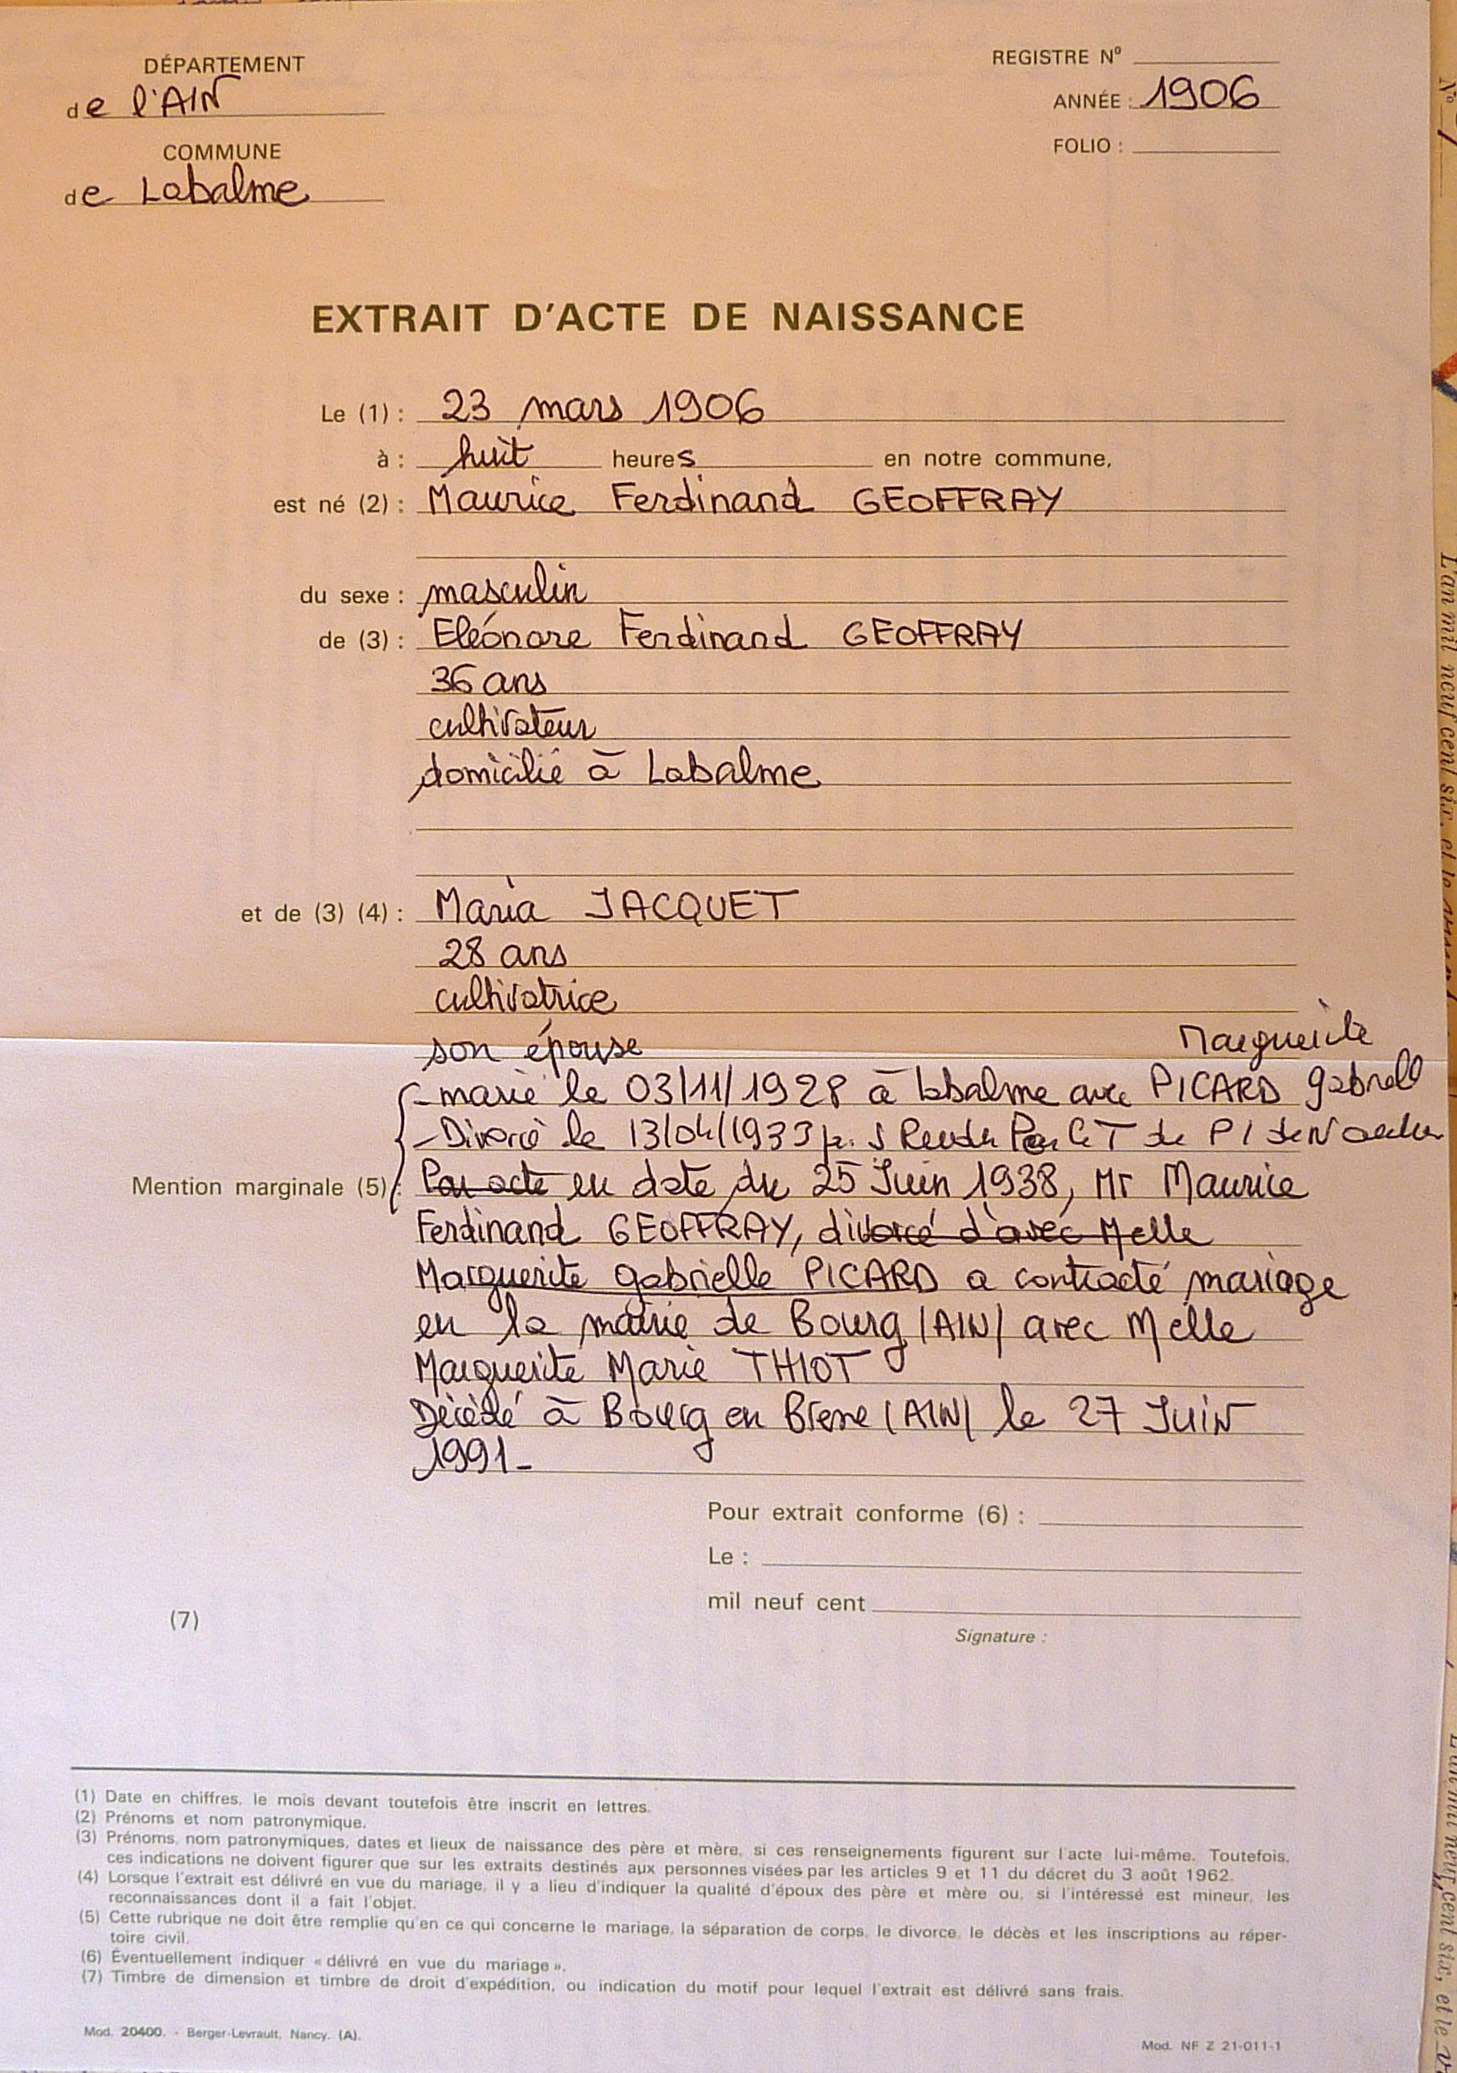 DÉPARTEMENT
de l'AIN
COMMUNE
de Labalme
REGISTRE Nº
ANNÉE : 1906
FOLIO :
EXTRAIT D'ACTE DE NAISSANCE
Le (1) : 23 mars 1906
à : huit heures en notre commune,
est né (2) : Maurice Ferdinand GEOFFRAY
du sexe : masculin
de (3) : Eléonore Ferdinand GEOFFRAY
36 ans
cultivateur
domicilié à Labalme
et de (3) (4) : Maria JACQUET
28 ans
cultivatrice
son épouse
Marguerite
- marié le 03/11/1928 à Labalme avec PICARD Gabriell
- Divorcé le 13/04/1933 Rendu Par de
Mention marginale (5) : Par acte en date du 25 Juin 1938, Mr Maurice
Ferdinand GEOFFRAY, divorcé d'avec Melle
Marguerite Gabrielle PICARD a contracté mariage
en la mairie de Bourg (AIN) avec Melle
Marguerite Marie THIOT
Décédé à Bourg en Bresse (AIN) le 27 Juin
1991 -
Pour extrait conforme (6) :
Le :
mil neuf cent
(7)
Signature :
(1) Date en chiffres, le mois devant toutefois être inscrit en lettres.
(2) Prénoms et nom patronymique.
(3) Prénoms, nom patronymiques, dates et lieux de naissance des père et mère, si ces renseignements figurent sur l'acte lui-même. Toutefois,
ces indications ne doivent figurer que sur les extraits destinés aux personnes visées par les articles 9 et 11 du décret du 3 août 1962.
(4) Lorsque l'extrait est délivré en vue du mariage, il y a lieu d'indiquer la qualité d'époux des père et mère ou, si l'intéressé est mineur, les
reconnaissances dont il a fait l'objet.
(5) Cette rubrique ne doit être remplie qu'en ce qui concerne le mariage, la séparation de corps, le divorce, le décès et les inscriptions au réper-
toire civil.
(6) Éventuellement indiquer « délivré en vue du mariage ».
(7) Timbre de dimension et timbre de droit d'expédition, ou indication du motif pour lequel l'extrait est délivré sans frais.
Mod. 20400. - Berger-Levrault, Nancy. (A).
Mod. NF Z 21-011-1
Nº
L'an mil neuf cent six, et le
L'an mil neuf cent six, et le